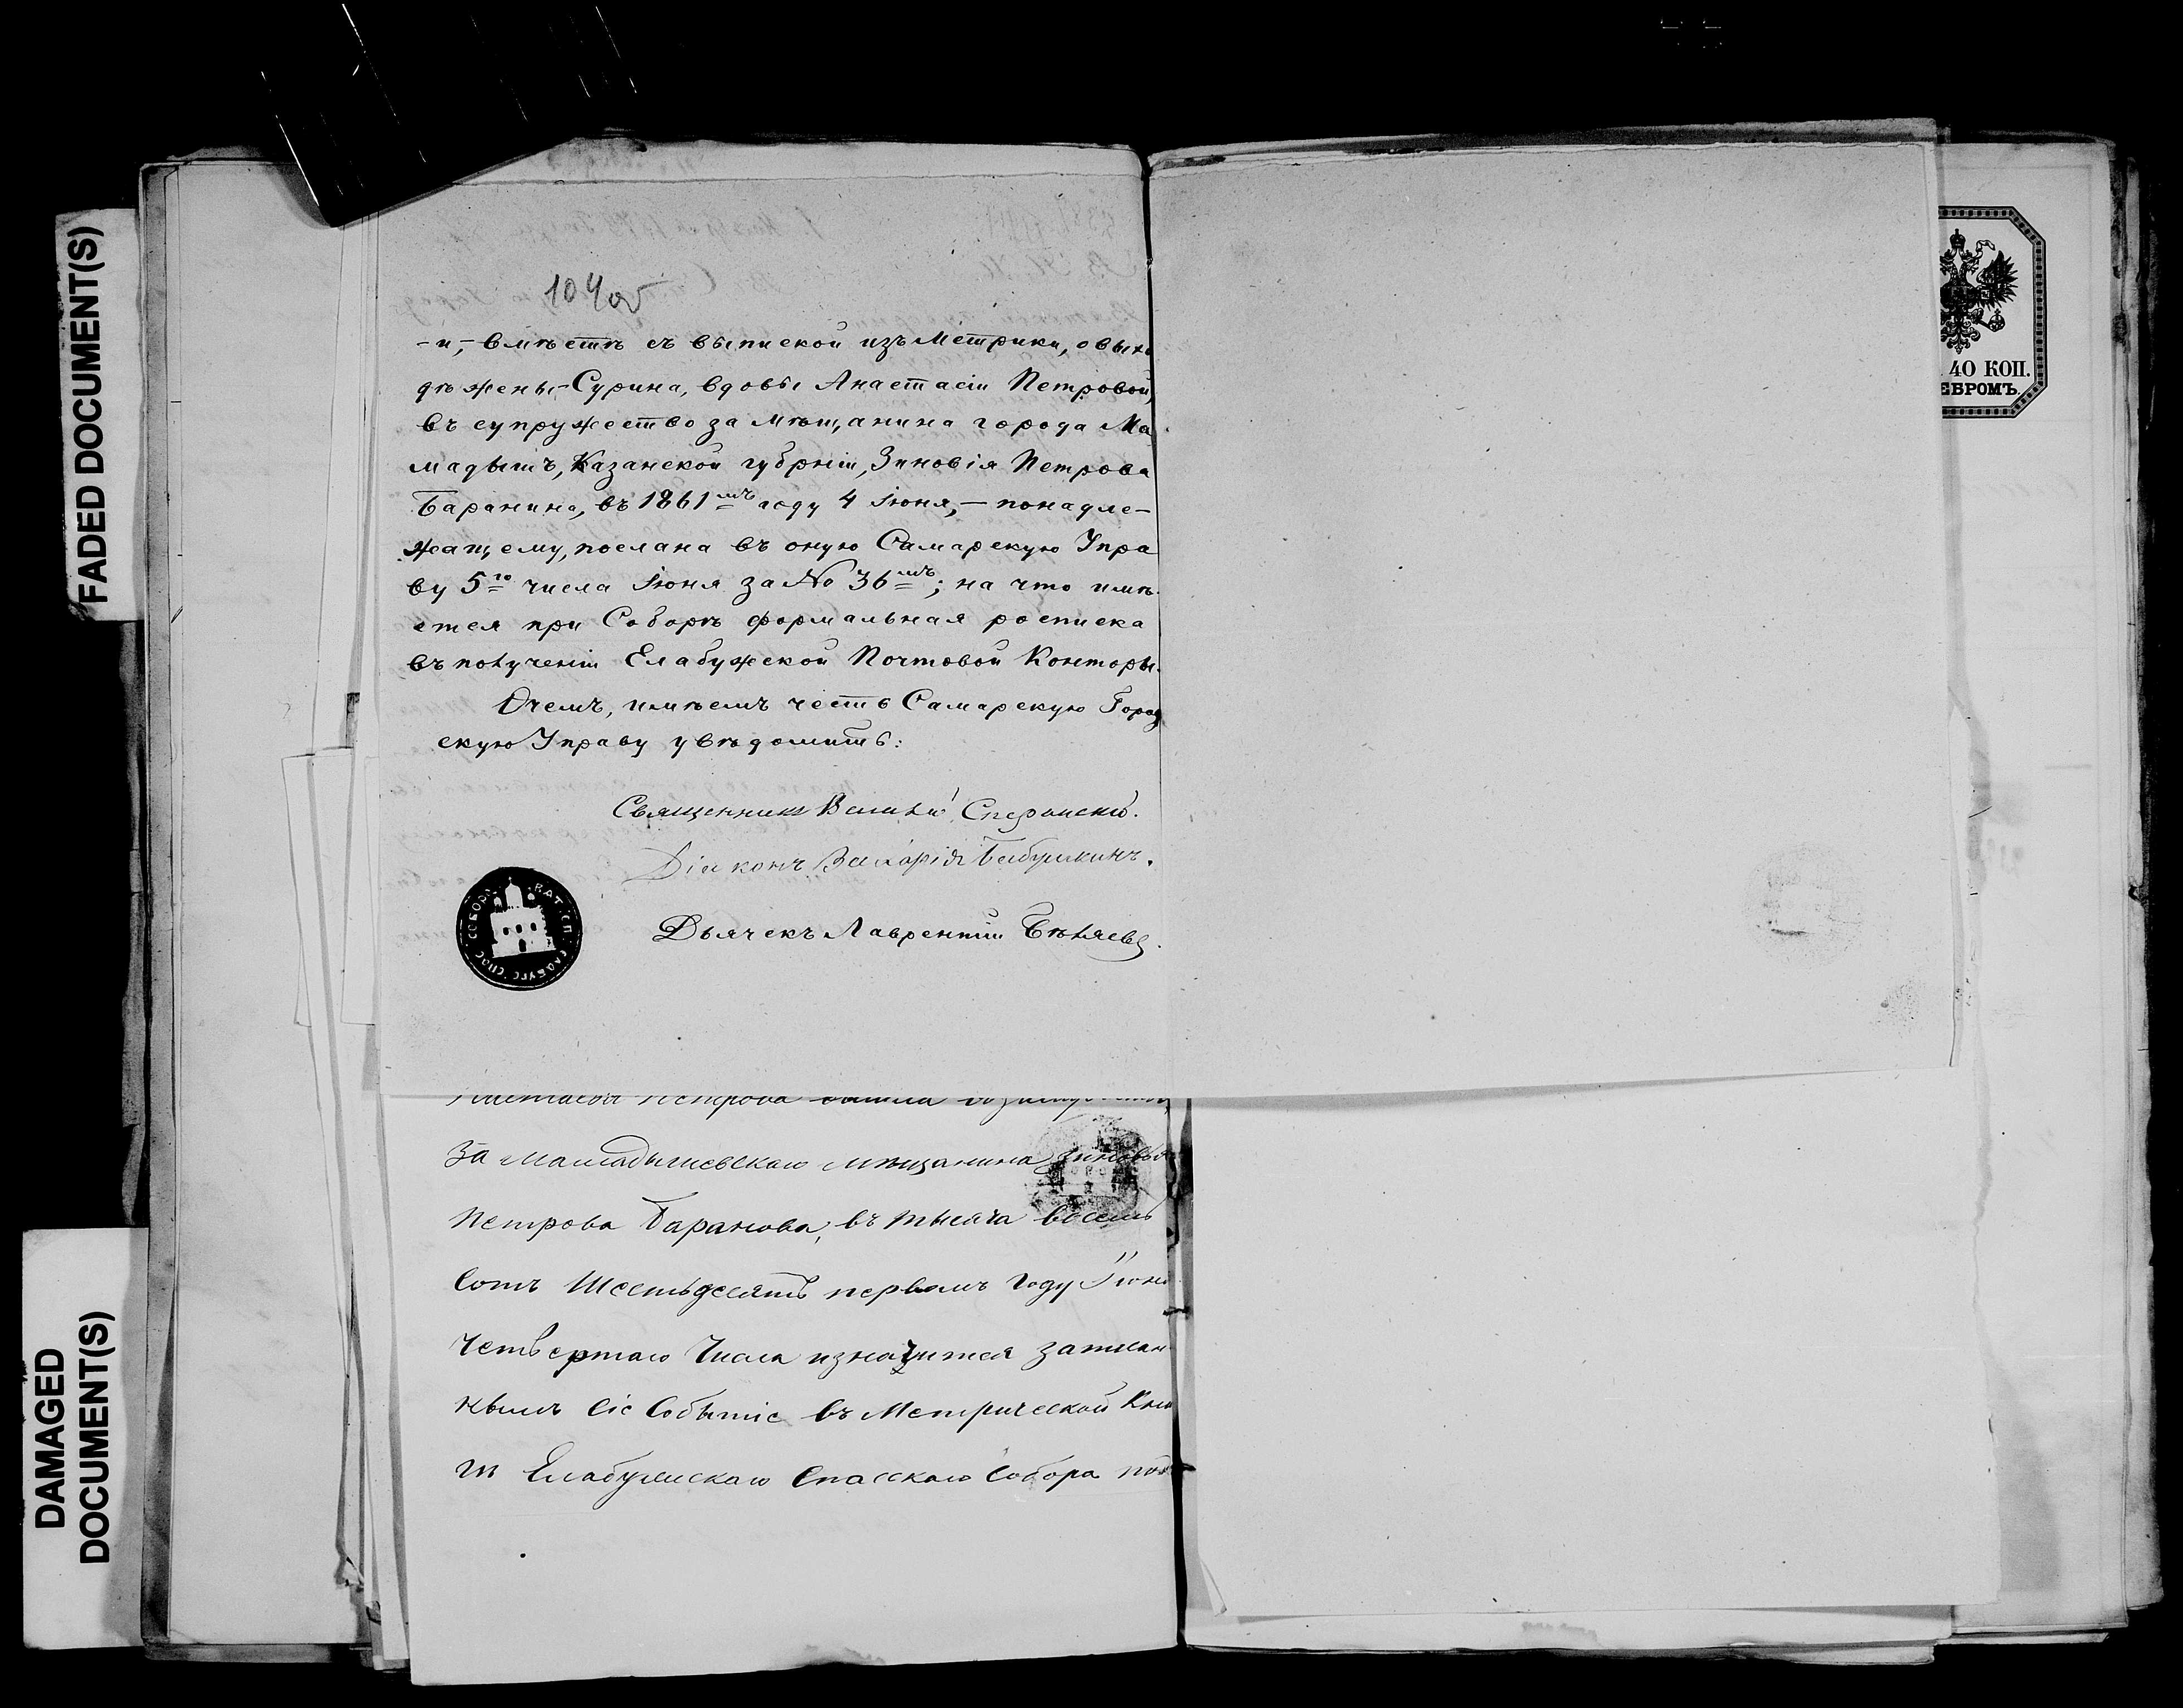 FADED DOCUMENT(S)
DAMAGED
DOCUMENT(S)
104об
-и,- вмѣстѣ съ выпиской изъ Метрики, о выхо
дѣ жены-Сурина, вдовы Анастасіи Петровой,
въ супружество за мѣщанина города Ма
мадышъ, Казанской губрніи, Зиновія Петрова
Баранина, въ 1861мъ году 4 Іюня,- понадле-
жащему, послана въ оную Самарскую Упра
ву 5го числа Іюня за № 36мъ; на что имѣ-
ется при Соборѣ формальная росписка
въ полученіи Елабужской Почтовой Конторы.
О чемъ, имѣемъ честь Самарскую Город
скую Управу увѣдомить:
Священникъ Василій Сперанскій.
Діаконъ Захарія Бабушкинъ.
Дьячекъ Лаврентій Бѣляевъ.
Петрова
за Мамадышевскаго мѣщанина Зиновья
Петрова Баранова, въ тысяча восемь
сотъ шестьдесятъ первомъ году Іюня
четвертаго числа и значится записан
нымъ сіе событіе въ Метрической Кни
гѣ Елабужскаго Спасскаго Собора
40 КОП.
ЕБРОМЪ.